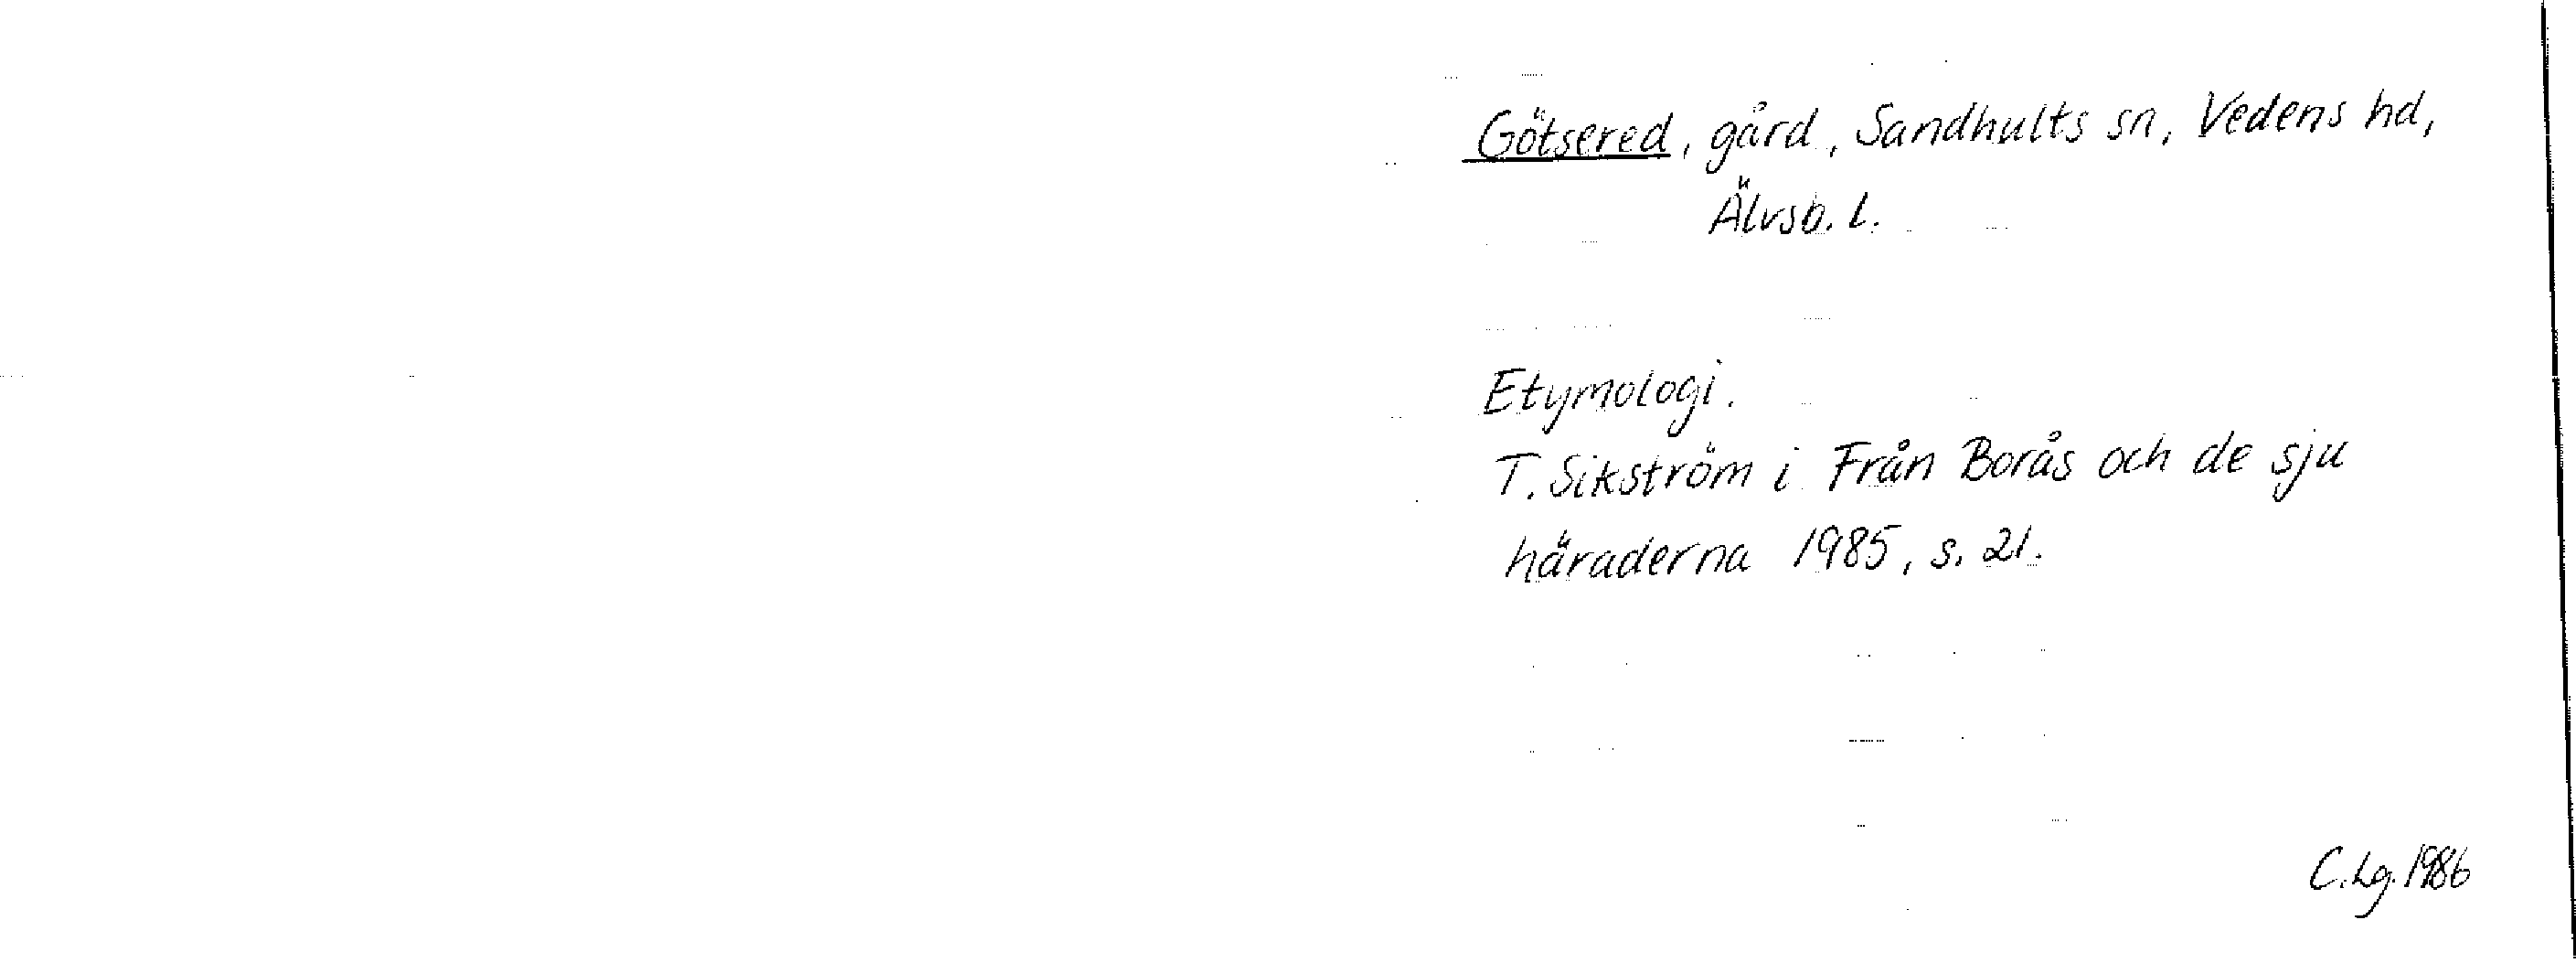 Götsered, gård, Sandhults sn, Vedens hd,
Älvsb. l.
Etymologi.
T. Sikström i Från Borås och de sju
häraderna 1985, s. 21.
C.Lg. 1986